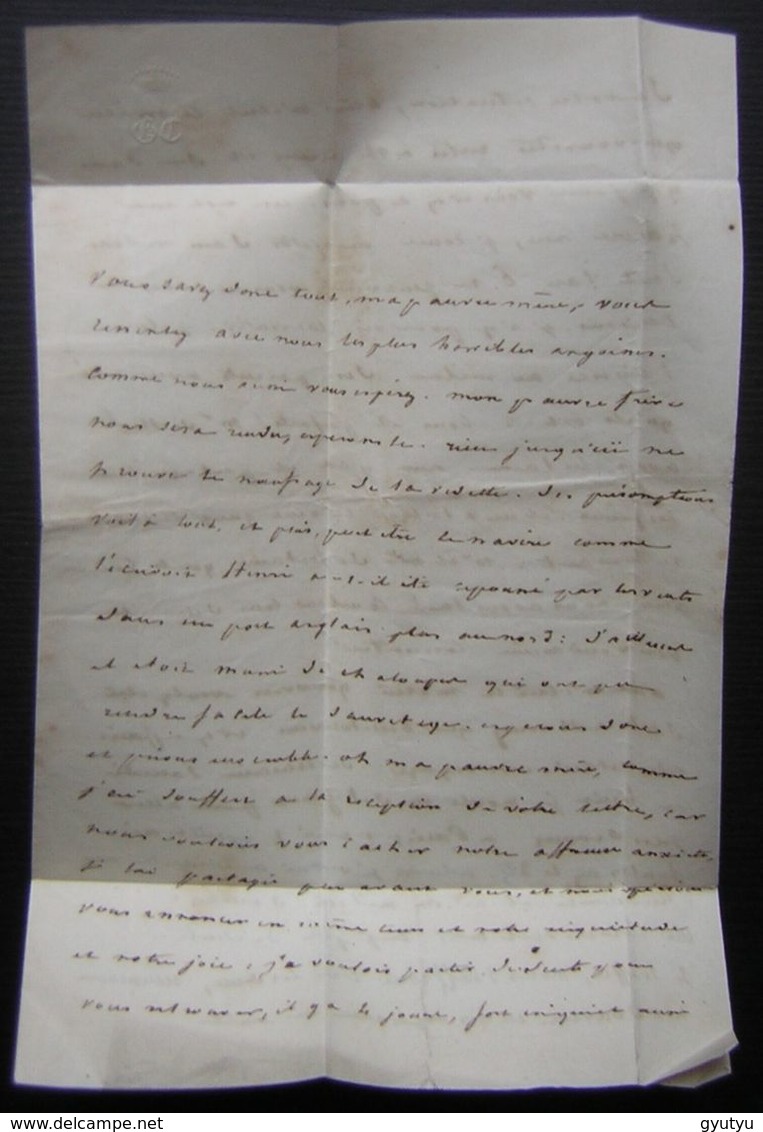 GC
vous savez donc tout, ma pauvre mère, vous
ressentez avec nous les plus horribles angoisses.
Comme nous aussi vous espérez. mon pauvre frère
nous sera rendu, espérons le. rien jusqu'ici ne
prouve le naufrage de la vedette. des présomptions
voilà tout, et puis, peut être le navire comme
l'écrivoit Henri a-t-il été repoussé par les vents
dans un port anglais plus au nord: d'ailleurs
il étoit muni de chaloupes qui ont pu
rendre facile le sauvetage. espérons donc
et prions ensemble. oh ma pauvre mère, comme
j'ai souffert a la réception de votre lettre, car
nous voulions vous cacher notre affreuse anxiété,
je l'ai partagée peu avant vous, et nous espérions
vous annoncer en même tems et notre inquiétude
et notre joie, j'a voulois partir de suite pour
vous retrouver, il y a 4 jours, fort inquiet aussi
delcampe.net
gyutyu